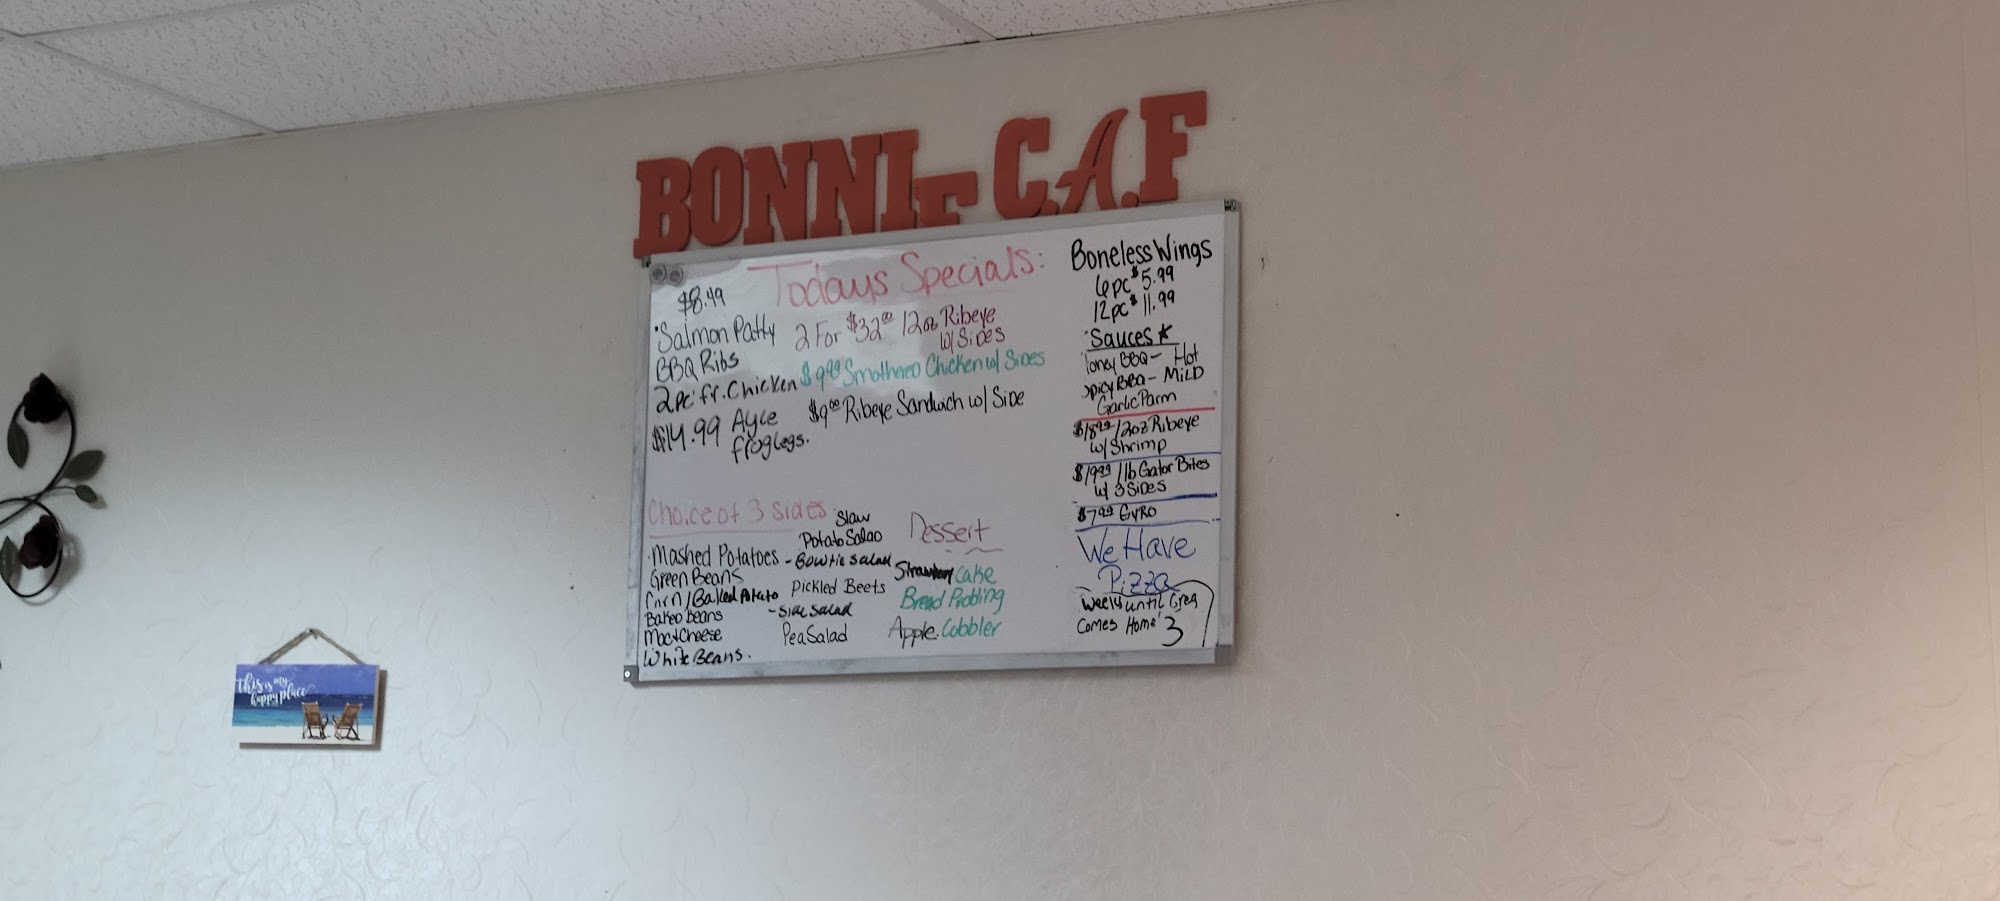 BONNIE C.A.F
Todays Specials:
$8.49
Salmon Patty
BBQ Ribs
2pc fr. Chicken
$14.99 Ayce
froglegs.
2 For $32.00 12oz Ribeye
w/ Sides
$9.99 Smothered Chicken w/ Sides
$9.00 Ribeye Sandwich w/ Side
Choice of 3 sides
Mashed Potatoes
Green Beans
Corn / Baked Potato
Baked Beans
Mac & Cheese
White Beans.
Slaw
Potato Salad
- Bowtie Salad
Pickled Beets
- Side Salad
Pea Salad
Dessert
Strawberry Cake
Bread Pudding
Apple Cobbler
Boneless Wings
6pc $5.99
12pc $11.99
Sauces *
Honey BBQ - Hot
Spicy BBQ - Mild
Garlic Parm
$18.99 12oz Ribeye
w/ Shrimp
$19.99 1lb Gator Bites
w/ 3 Sides
$7.99 Gyro
We Have
Pizza
Weeks until Greg
Comes Home 3
This is my
happy place